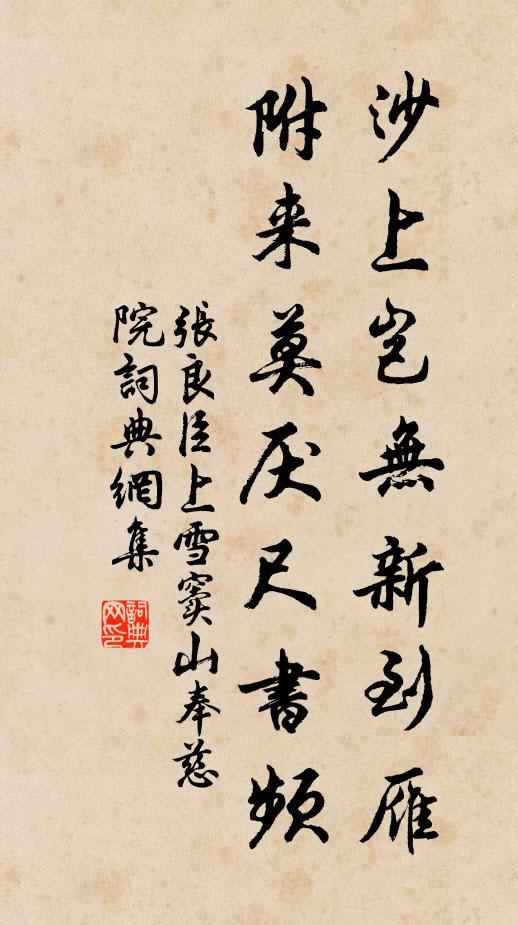 沙上岂無新到雁
附来莫厌尺書頻
張良臣上雪窦山奉慈
院詞典網集
詞典网印